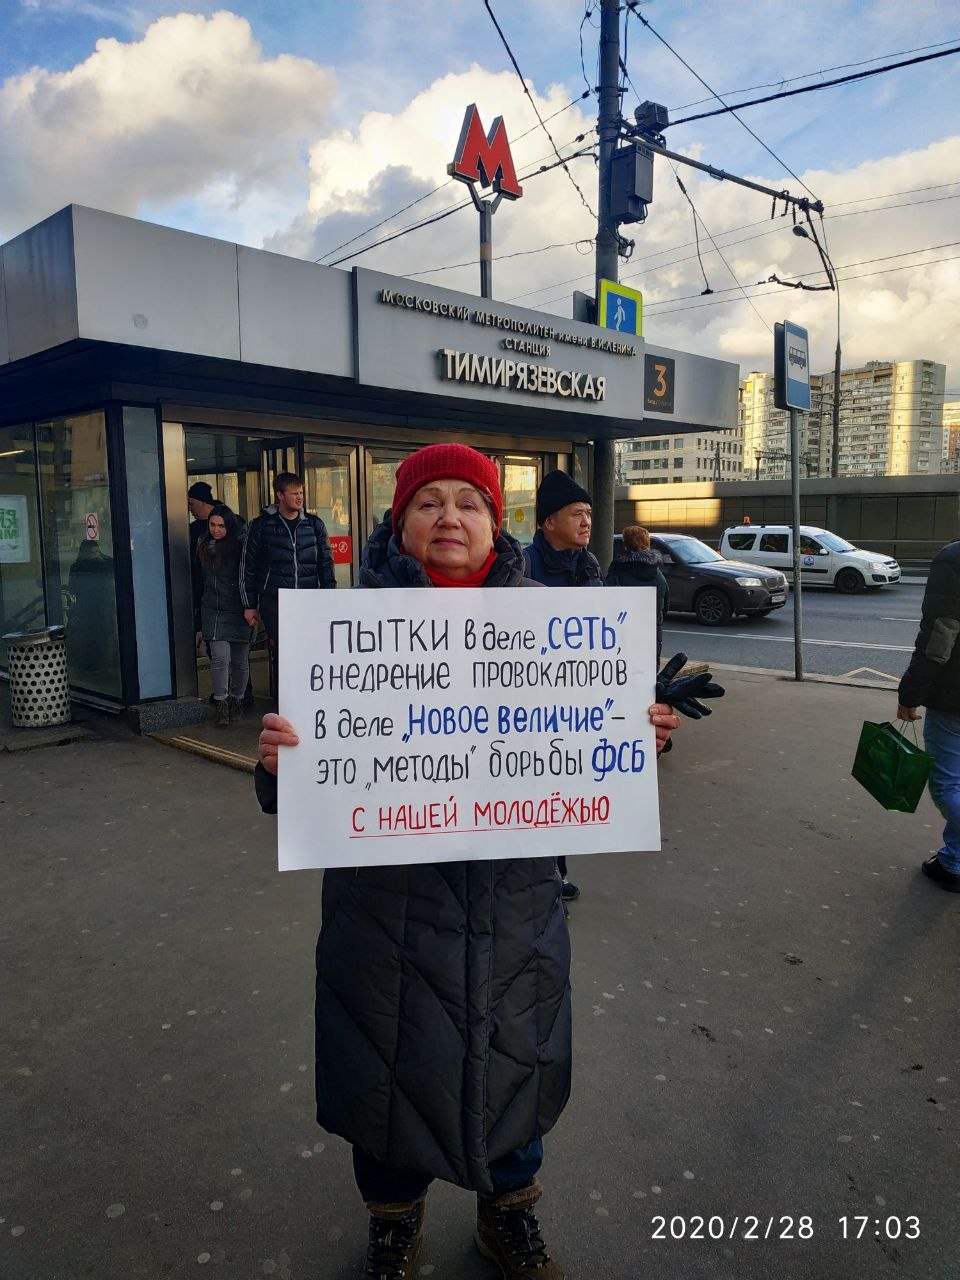 М
МОСКОВСКИЙ МЕТРОПОЛИТЕН имени В.И.ЛЕНИНА
СТАНЦИЯ
ТИМИРЯЗЕВСКАЯ
3
ПЫТКИ в деле „СЕТЬ",
внедрение ПРОВОКАТОРОВ
в деле „Новое величие"–
это „методы" борьбы ФСБ
с НАШЕЙ МОЛОДЁЖЬЮ
2020/2/28 17:03